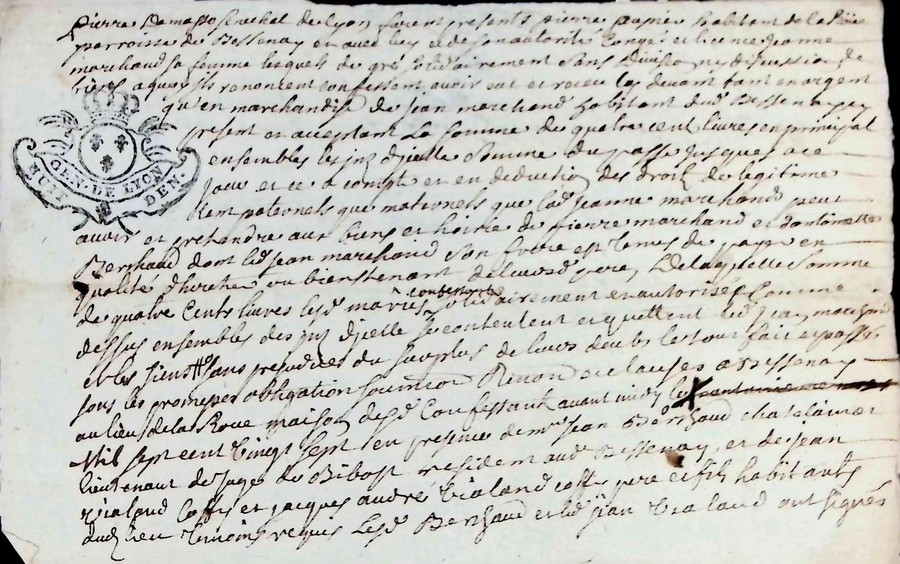 pierre Damasso senechal de Lyon furent presents pierre papier habitant de la Roüe
parroisse de Bessenay et avec luy et de son autorité Congé et licence Jeanne
marchand sa femme lesquels de gré solidairement sans division ny discussion de
biens a quoy ils renoncent confessent avoir eut et receu cy devant tant en argent
qu'en marchandise de jean marchand habitant dud Bessenay icy
present et acceptant La somme de quatre cent livres en principal
ensembles les jnz djcelle somme du passe jusques a ce
jour et ce a compte et en deduction des droitz de legitime
tant paternels que maternels que lad jeanne marchand peut
GEN. DE LYON
HUIT DEN.
avoir et pretendre aux biens et hoirie de pierre marchand et Antoinette
Berchaud dont led jean marchand son frere est tenus de payer en
qualité dheritier ou bienstenant de leursd pere, De laquelle somme
de quatre Cents livres lesd mariés contents solidairement et autorisee Comme
dessus ensembles des jnz djcelle se contentent et quittent led jean marchand
et les siens sans prejudice du surplus de leurs deubs le tout fait et passé
sous les promesses obligation soumission Renon et clauses a Bessenay
au lieu de la Roue maison desd Confessants avant midy le
Mil sept cent vingt sept en presence de me jean Berchaud chatelain
lieutenant de juge de Bibost resident aud Bessenay, et de jean
vialand Coffis et jacques andré vialand coffis pere et fils habitants
dud lieu temoins requis Lesd Berchaud et led jean vialand ont signés